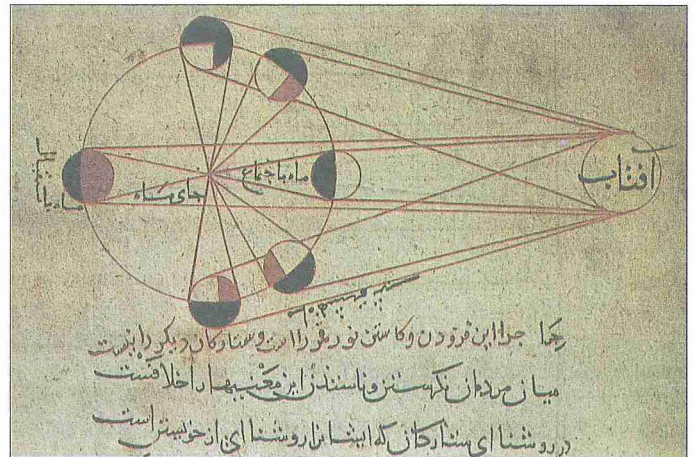 افتاب
ماه باجتماع
ماه باستقبال
چرا این فزودن وکاستن نور قمر را است وستارکان دیکر را نیست
میان مردمان نکرستن این معنیها را خلافست
در روشنا ای ستارکان که ایشانرا روشنا ای از خویشتن است